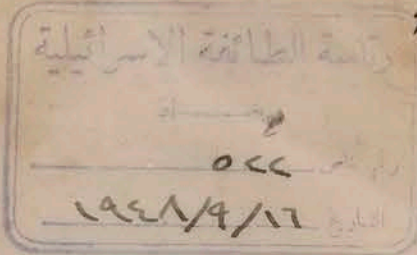 رئاسة الطائفة الاسرائيلية
بغداد
رقم
التاريخ ١٩٤٨/٩/١٦